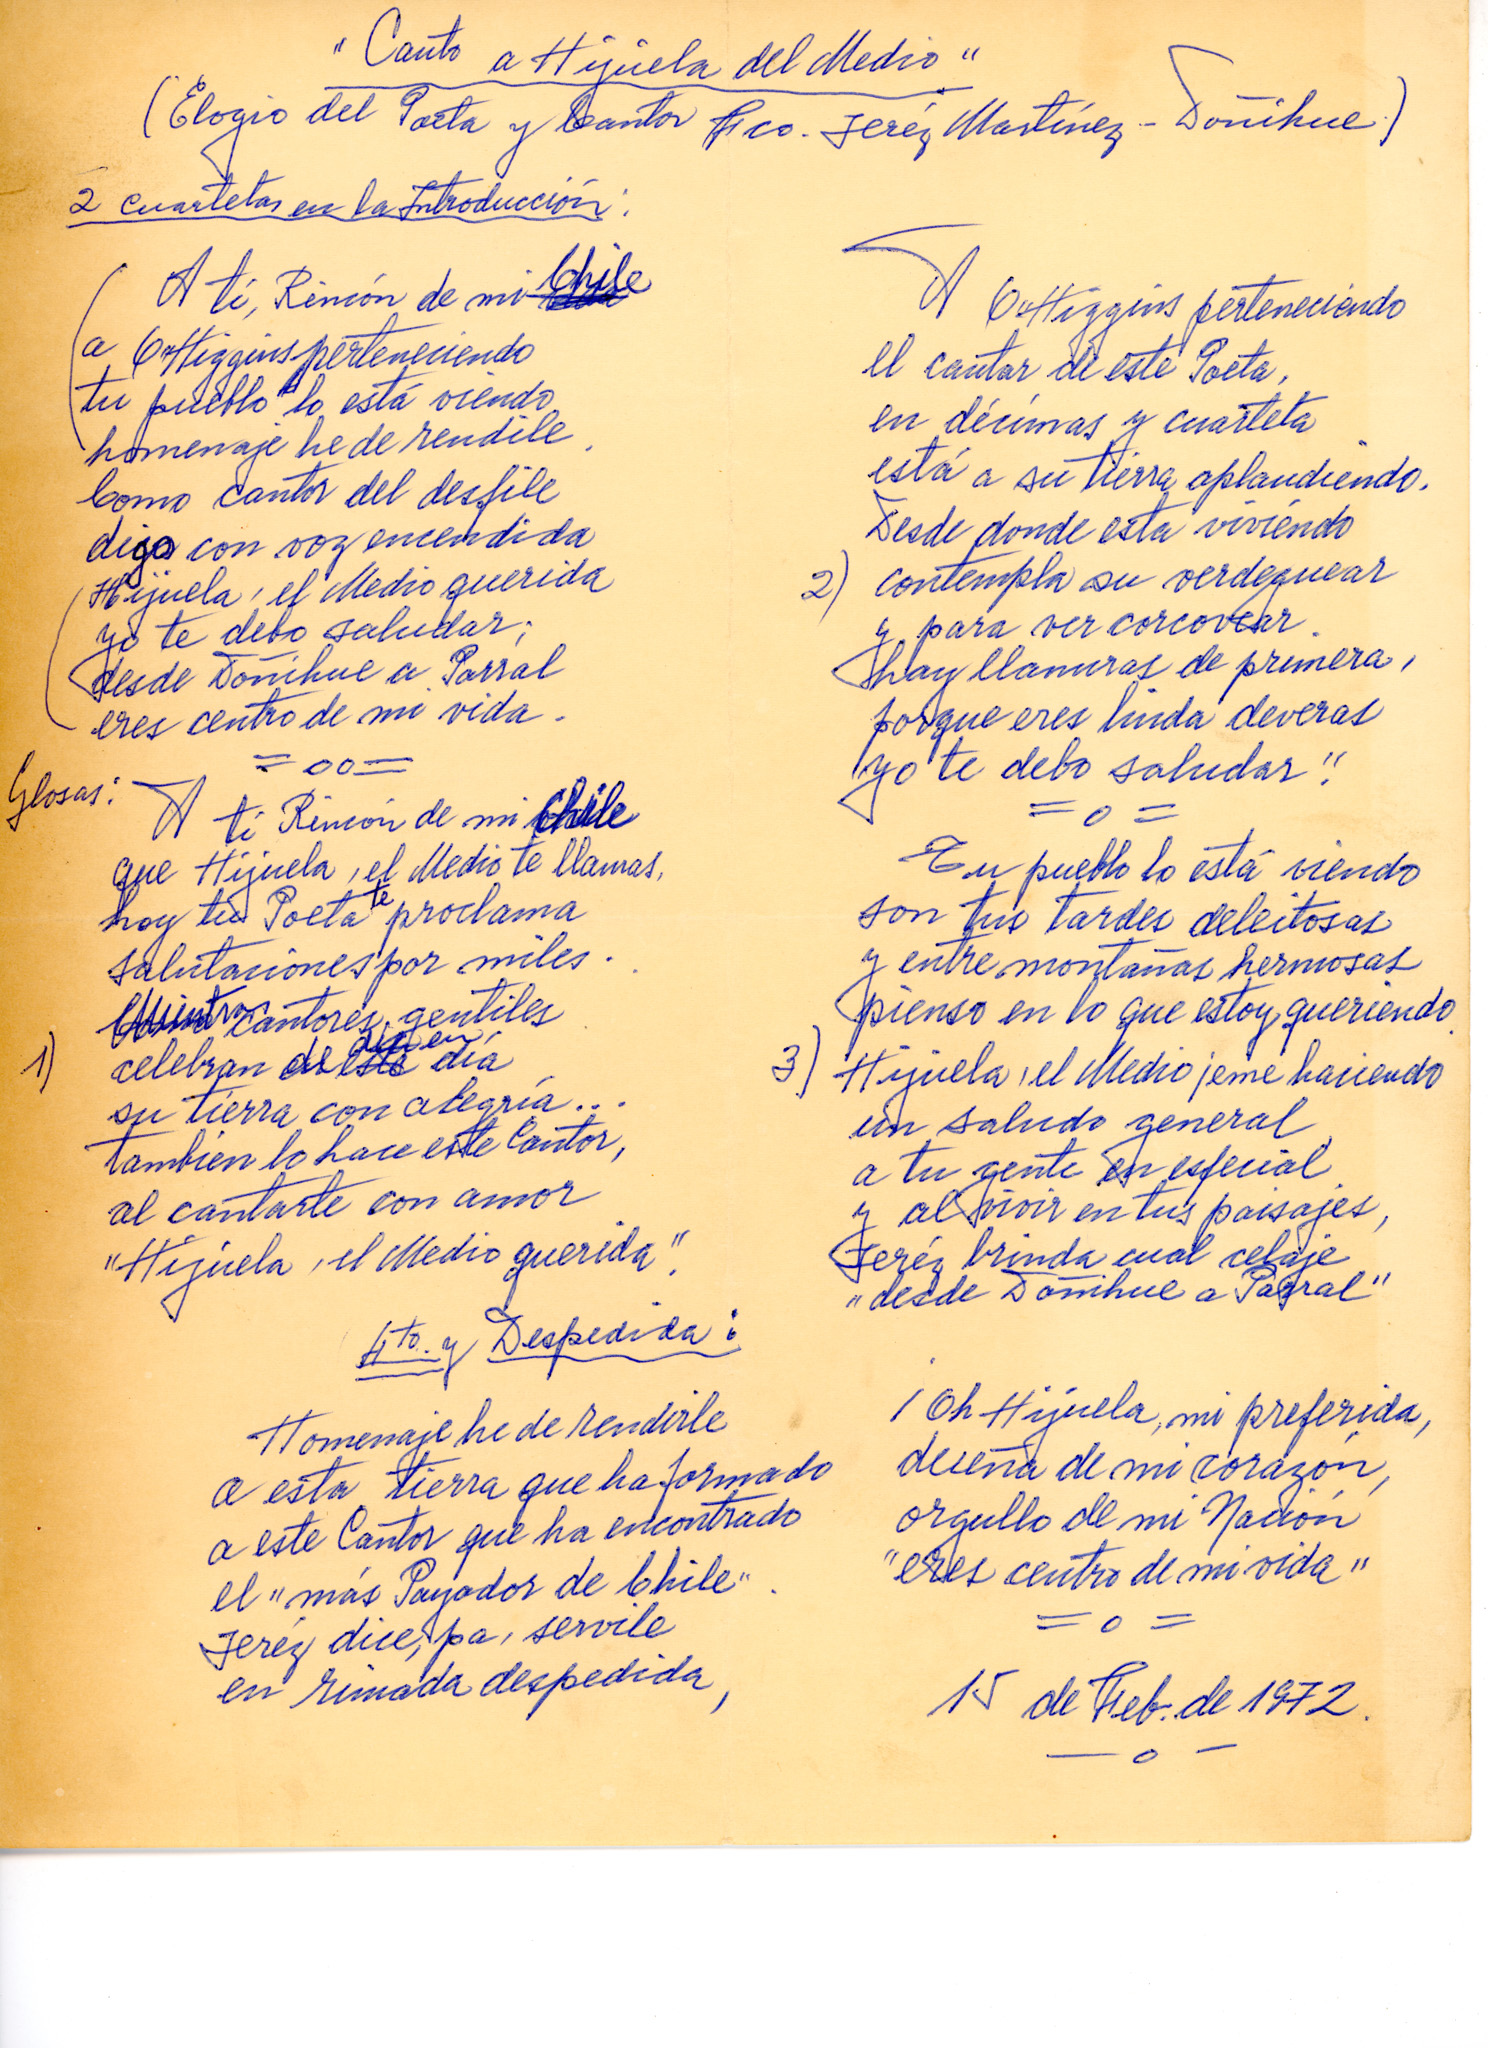 "Canto a Hijuela del Medio"
(Elogio del Poeta y Cantor Fco. Jeréz Martínez - Doñihue)
2 cuartetas en la Introducción:
A ti, Rincón de mi Chile
a O"Higgins perteneciendo
tu pueblo lo está viendo
homenaje he de rendile.
Como cantor del desfile
digo con voz encendida
Hijuela, el Medio querida
yo te debo saludar;
desde Doñihue a Parral
eres centro de mi vida.
= oo =
Glosas:
A ti Rincón de mi Chile
que Hijuela, el Medio te llamas,
hoy tu Poeta te proclama
salutaciones por miles.
cantores gentiles
1) celebran en día
su tierra con alegría...
también lo hace este Cantor,
al cantarte con amor
"Hijuela, el Medio querida".
A O"Higgins perteneciendo
el cantar de este Poeta,
en décimas y cuarteta
está a su tierra aplaudiendo.
Desde donde esta viviendo
2) contempla su verdeguear
y para ver corcovear
hay llanuras de primera,
porque eres linda deveras
yo te debo saludar".
= o =
Tu pueblo lo está viendo
son tus tardes deleitosas
y entre montañas hermosas
pienso en lo que estoy queriendo.
3) Hijuela, el Medio jeme haciendo
un saludo general
a tu gente en especial
y al vivir en tus paisajes,
Jeréz brinda cual celaje
"desde Doñihue a Parral"
4to. y Despedida:
Homenaje he de rendirle
a esta tierra que ha formado
a este Cantor que ha encontrado
el "más Payador de Chile".
Jeréz dice, pa, servile
en rimada despedida,
¡Oh Hijuela, mi preferida,
dueña de mi corazón,
orgullo de mi Nación
"eres centro de mi vida"
= o =
15 de Feb. de 1972.
— o —